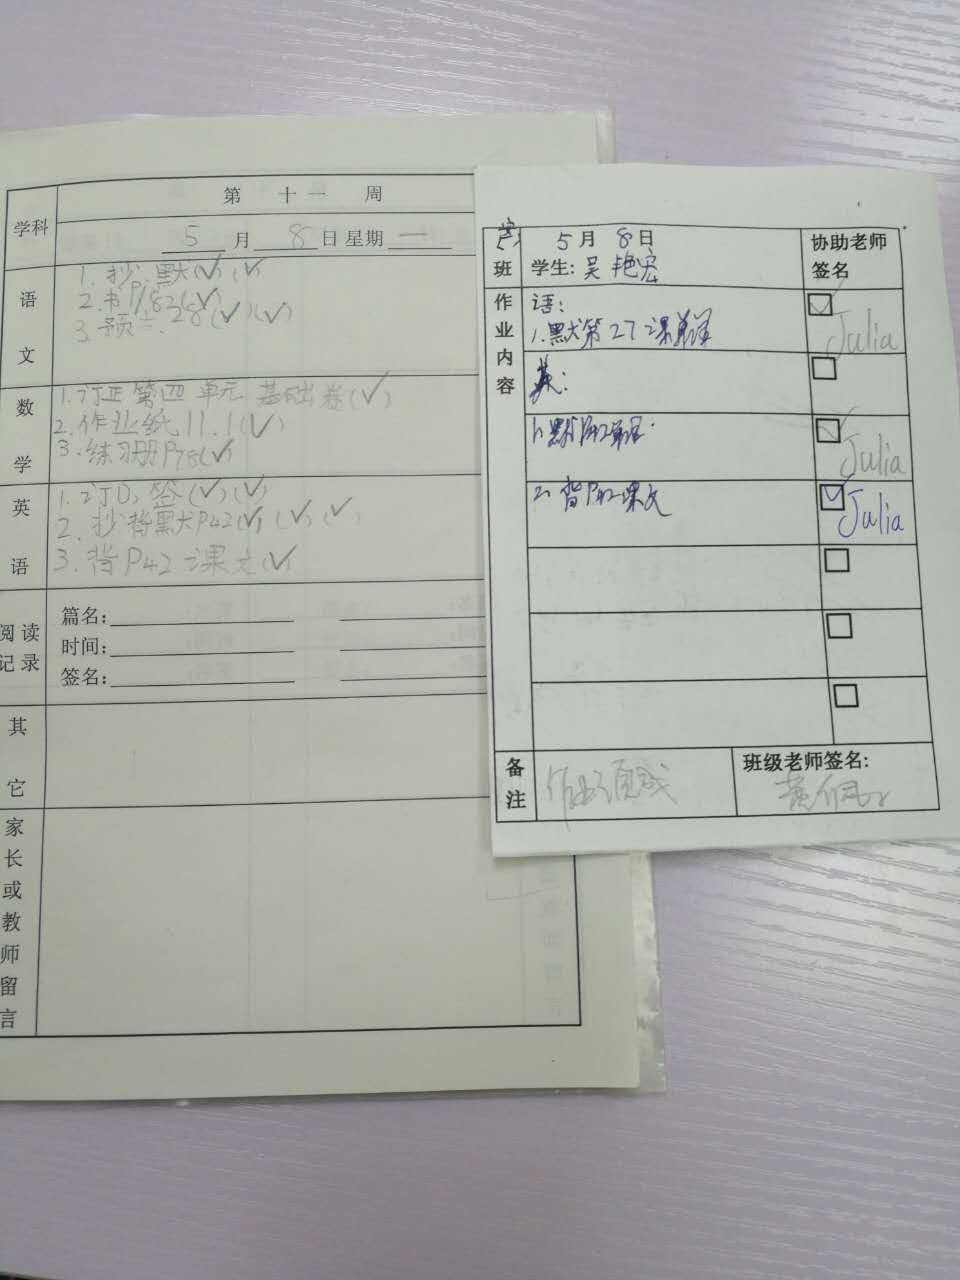 学科
第 十一 周
5 月 8 日 星期 一
语文
1. 抄.默(✓)(✓)
2. 书P182(✓)
3. 预 28(✓)(✓)
数学
1. 订正第四单元 基础卷(✓)
2. 作业纸11.1(✓)
3. 练习册P78(✓)
英语
1. 订D,签(✓)(✓)
2. 抄背默P42(✓)(✓)(✓)
3. 背P42课文(✓)
阅读记录
篇名:
时间:
签名:
其它
家长或教师留言
班
5月 8日
学生: 吴艳宏
协助老师
签名
作业内容
语:
1. 默第27课单词
Julia
英:
1. 默P42单词
Julia
2. 背P42课文
Julia
备注
班级老师签名: